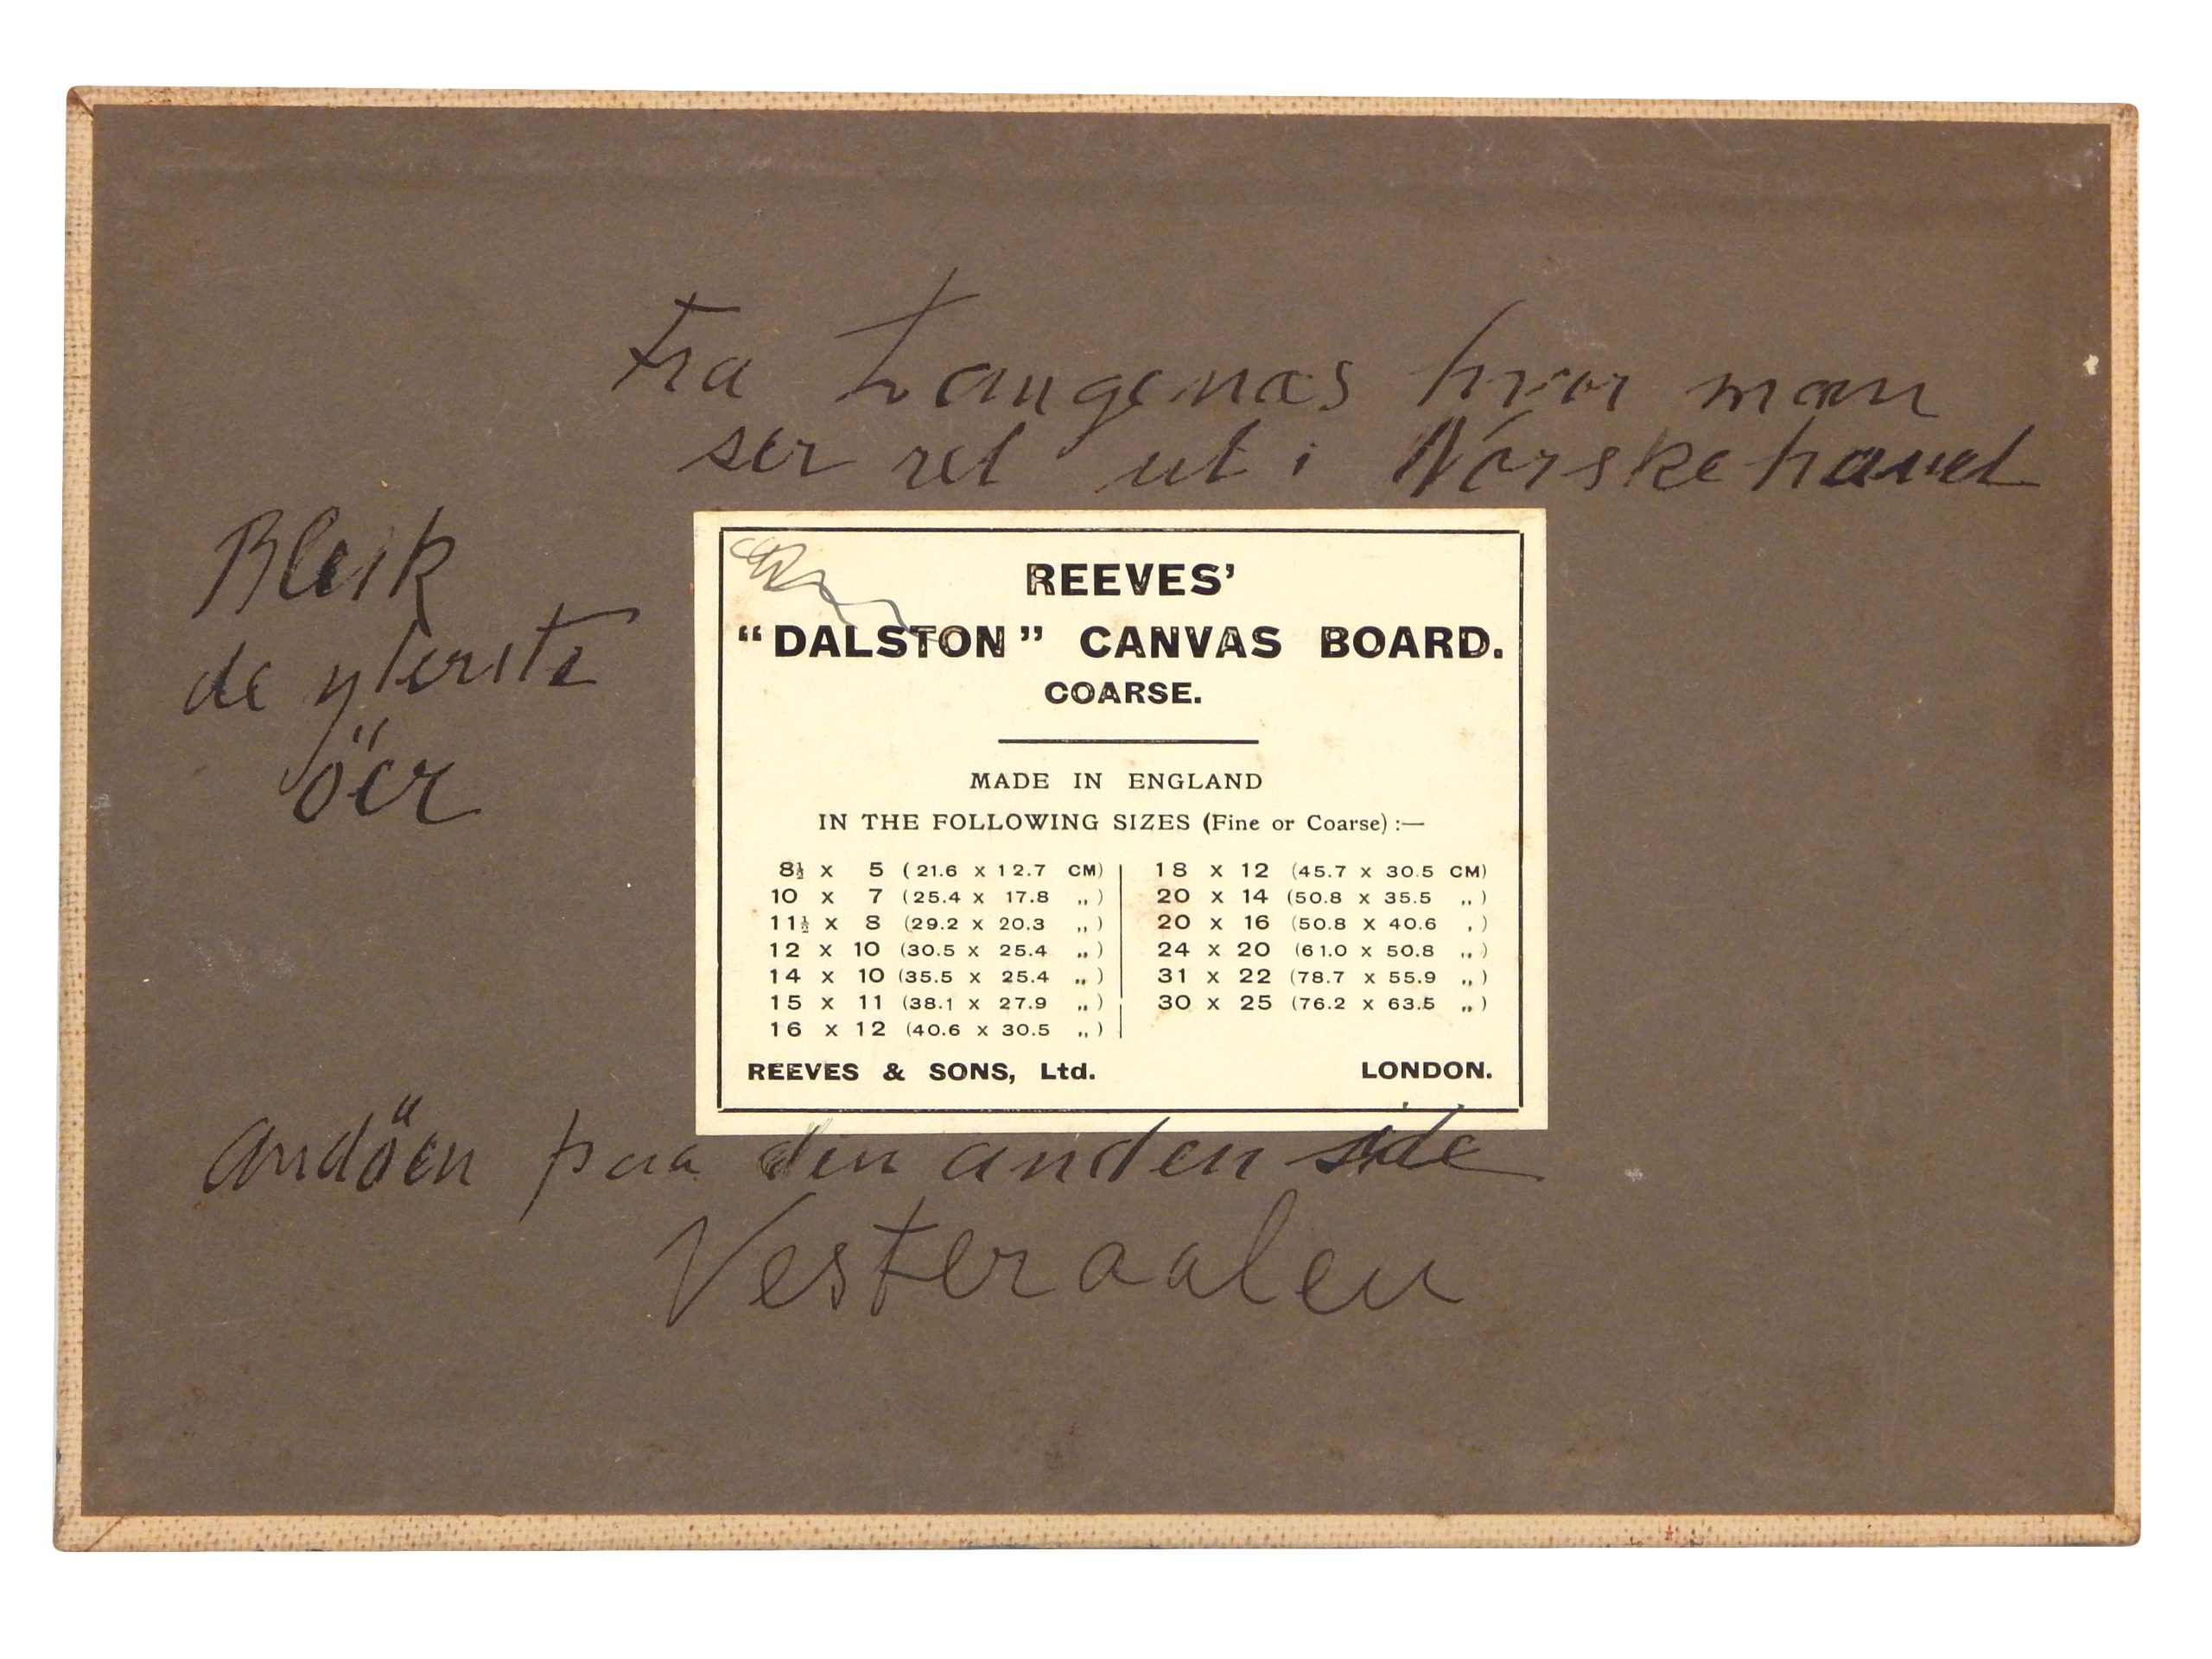 Fra Langenæs hvor man
ser ret ut i Norskehavet
Bleik
de yterste
öer
REEVES'
“DALSTON” CANVAS BOARD.
COARSE.
MADE IN ENGLAND
IN THE FOLLOWING SIZES (Fine or Coarse) :—
8½ x 5 (21.6 x 12.7 CM)
10 x 7 (25.4 x 17.8 ,,)
11½ x 8 (29.2 x 20.3 ,,)
12 x 10 (30.5 x 25.4 ,,)
14 x 10 (35.5 x 25.4 ,,)
15 x 11 (38.1 x 27.9 ,,)
16 x 12 (40.6 x 30.5 ,,)
18 x 12 (45.7 x 30.5 CM)
20 x 14 (50.8 x 35.5 ,,)
20 x 16 (50.8 x 40.6 ,)
24 x 20 (61.0 x 50.8 ,,)
31 x 22 (78.7 x 55.9 ,,)
30 x 25 (76.2 x 63.5 ,,)
REEVES & SONS, Ltd. LONDON.
Andöen paa den anden side
Vesteraalen